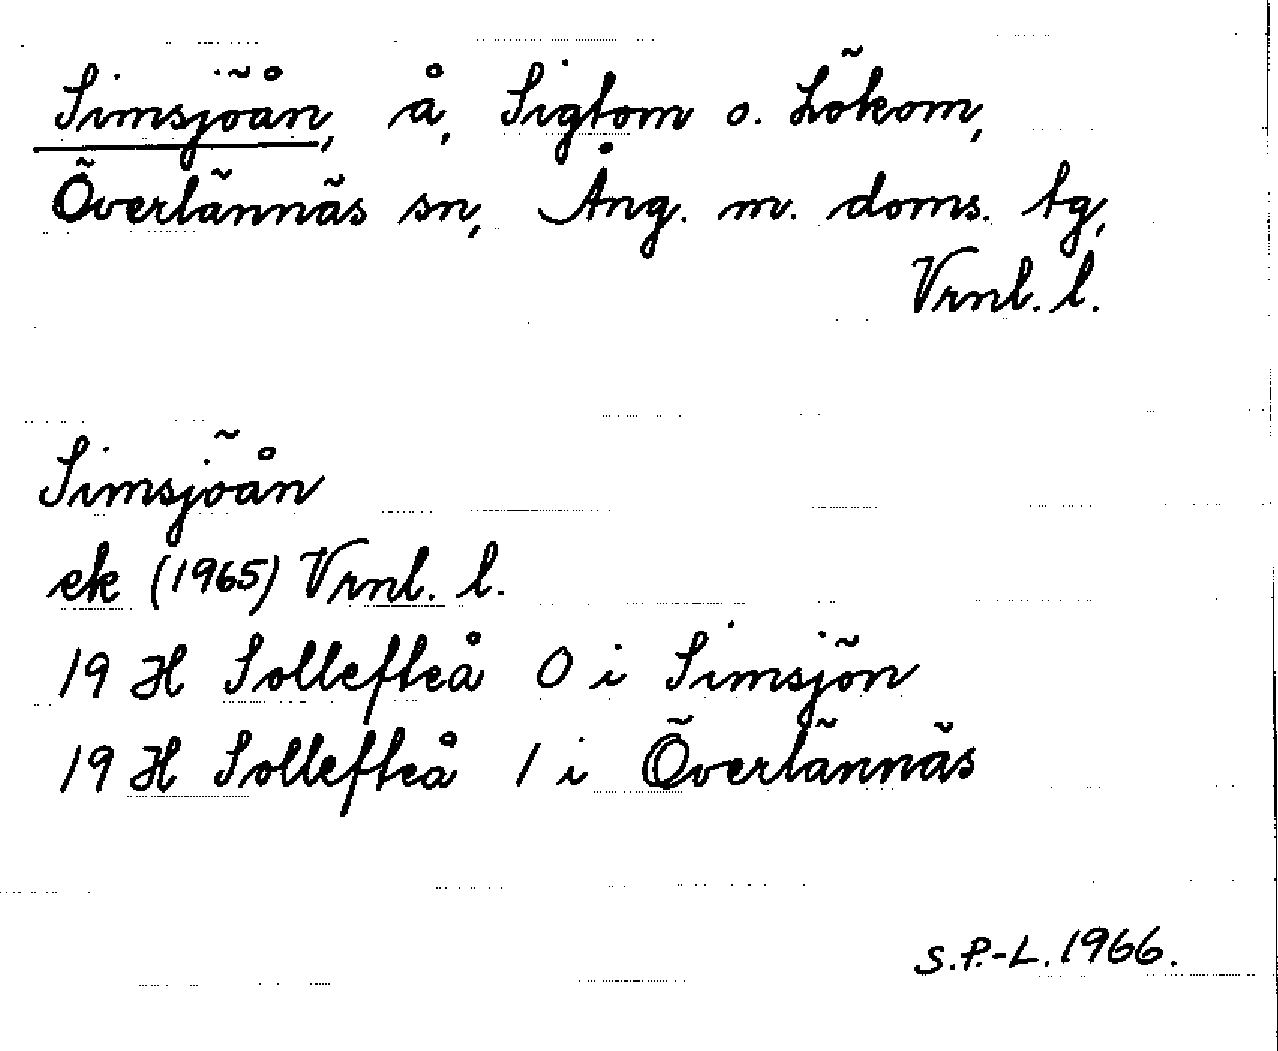 Simsjöån, å, Sigtom o. Lökom,
Överlännäs sn, Ång. m. doms. tg,
Vrnl. l.
Simsjöån
ek (1965) Vrnl. l.
19 H Sollefteå 0 i Simsjön
19 H Sollefteå 1 i Överlännäs
S.P.-L. 1966.